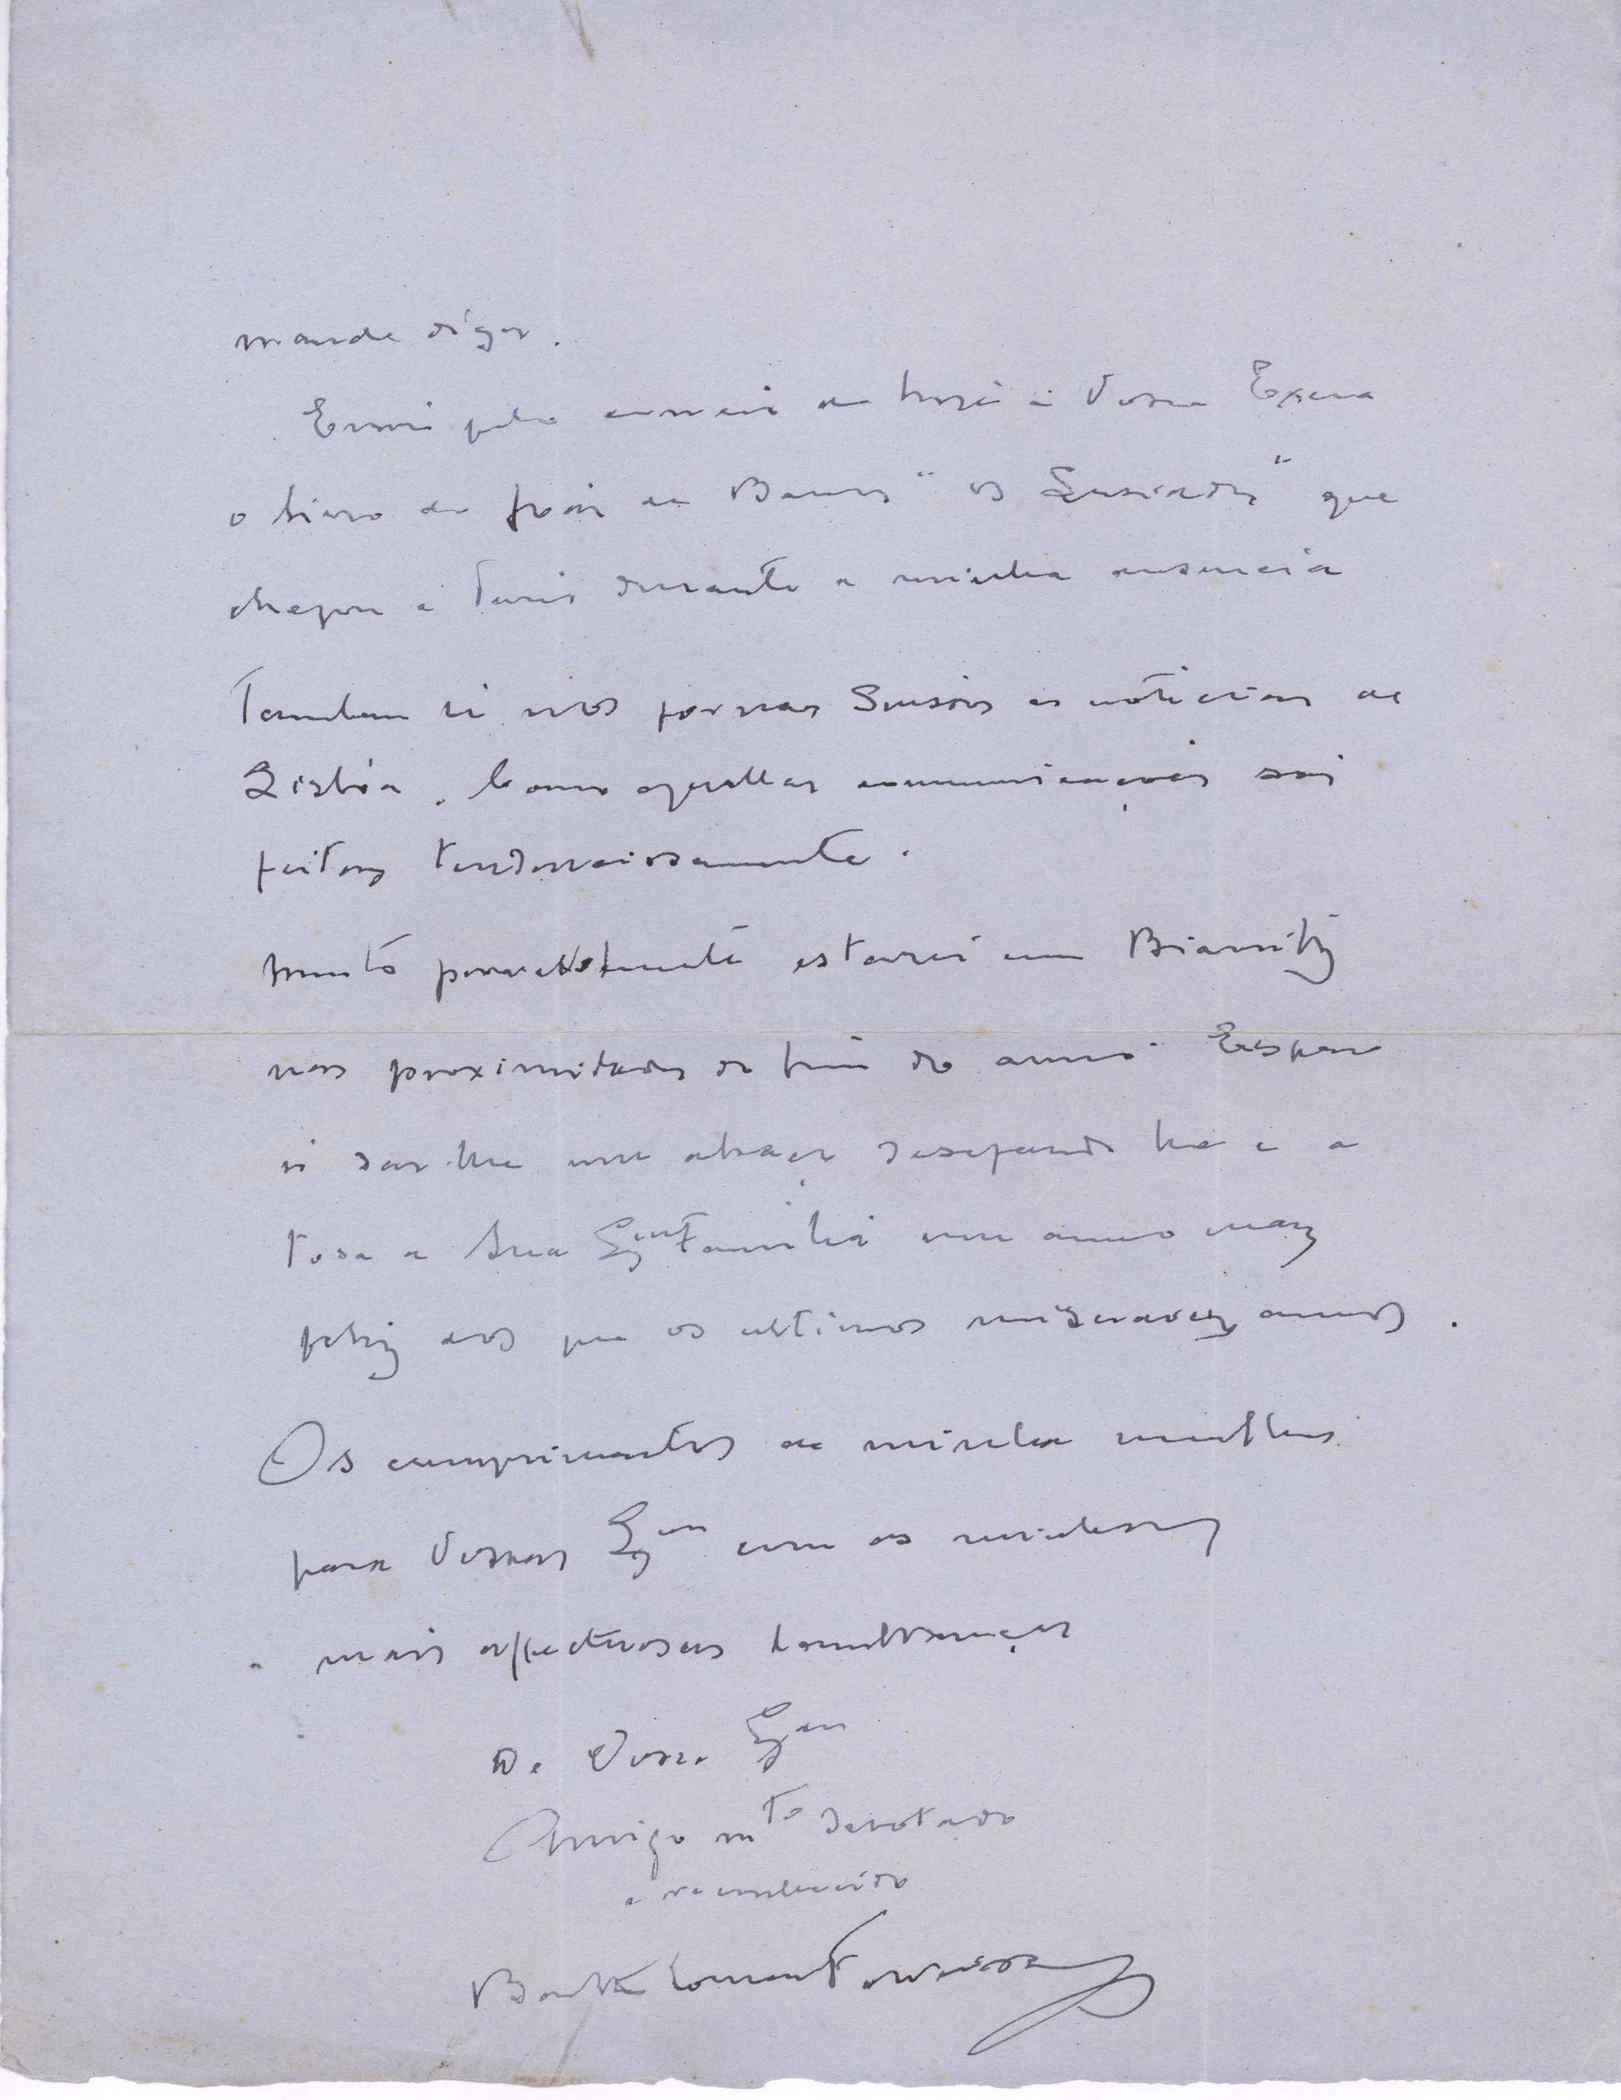 mande dizer.
Enviei pelo correio de hoje a Vossa Excia
o livro de João de Barros "os Lusiadas" que
chegou a Paris durante a minha ausencia
Tambem li nos jornaes Suissos as noticias de
Lisbôa. Como aquellas communicações são
feitas tendenciosamente.
Muito provavelmente estarei em Biarritz
nas proximidades do fim do anno. Espero
ir dar-lhe um abraço desejando lhe e a
toda a Sua Exma Familia um anno mais
feliz do que os ultimos miseraveis annos.
Os cumprimentos de minha mulher
para Vossas Exas com as minhas
mais affectuosas lembranças
De Vossa Exa
Amigo mto devotado
e reconhecido